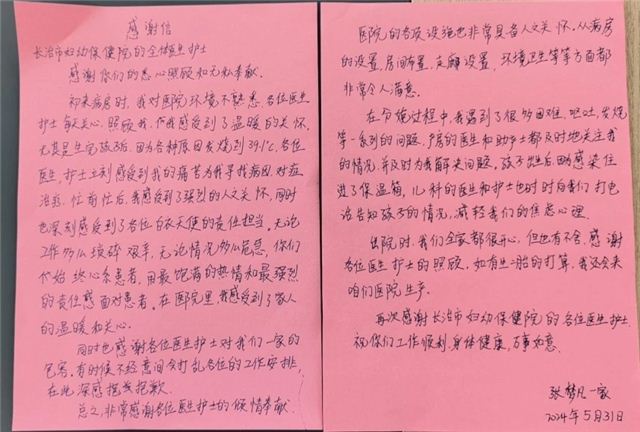 感谢信
长治市妇幼保健院的全体医生护士
感谢你们的悉心照顾和无私奉献.
初来病房时,我对医院环境不熟悉,各位医生
护士每天关心、照顾我,使我感受到了温暖的关怀,
尤其是生完孩子后,因为各种原因发烧到39.1℃,各位
医生,护士立刻感受到我的痛苦为我寻找病因,对症
治疗,忙前忙后,我感受到了强烈的人文关怀,同时
也深刻感受到了各位白衣天使的责任担当,无论
工作多么琐碎艰辛,无论情况多么危急,你们
都始终心系患者,用最饱满的热情和最强烈
的责任感面对患者。在医院里,我感受到了家人
的温暖和关心。
同时也感谢各位医生护士对我们一家的
包容,有时候不经意间会打乱各位的工作安排,
在此深感抱歉.
总之,非常感谢各位医生护士的倾情奉献.
医院的各项设施也非常具备人文关怀.从病房
的设置,房间布置,走廊设置,环境卫生等等方面都
非常令人满意。
在分娩过程中,我遇到了很多困难,呕吐,发烧
等一系列的问题,产房的医生和助产士都及时地关注我
的情况,并及时为我解决问题,孩子出生后因为感染住
进了保温箱,儿科的医生和护士也时时向我们打电
话告知孩子的情况,减轻我们的焦虑心理.
出院时,我们全家都很开心,但也有不舍.感谢
各位医生护士的照顾,如有生二胎的打算,我还会来
咱们医院生产.
再次感谢长治市妇幼保健院的各位医生护士,
祝你们工作顺利,身体健康,万事如意.
张梦凡一家
2024年5月31日